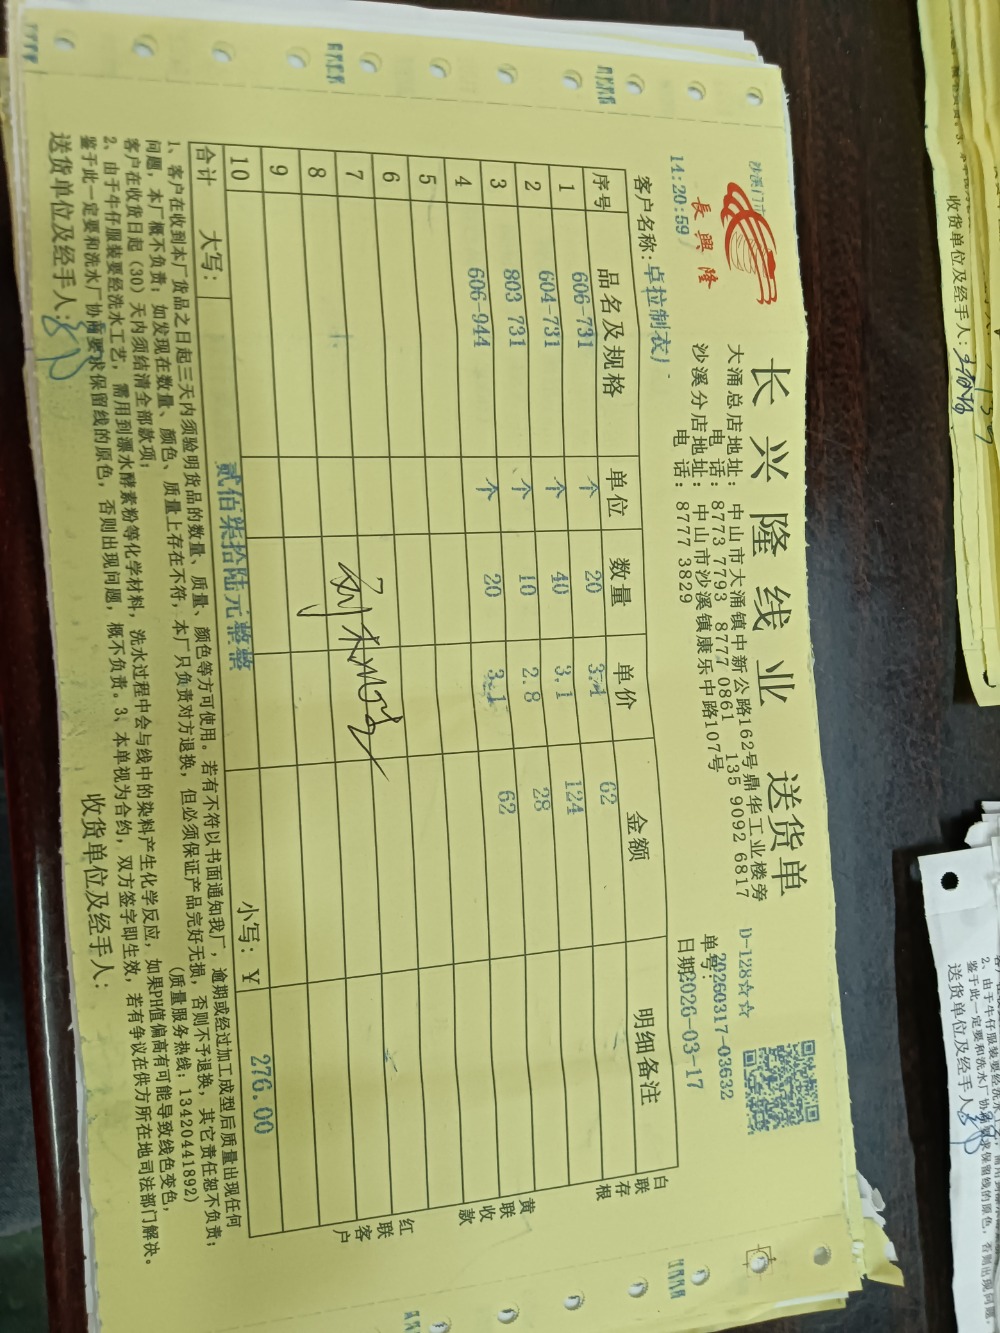 沙溪门市
長興隆
长兴隆线业 送货单
大涌总店地址：中山市大涌镇中新公路162号鼎华工业楼旁
电 话：8773 7793 8777 0861 135 9092 6817
沙溪分店地址：中山市沙溪镇康乐中路107号
电 话：8777 3829
D-128☆☆
单号：20260317-03632
日期2026-03-17
14:20:59
客户名称：卓拉制衣厂
序号 品名及规格 单位 数量 单价 金额 明细备注
1 606-731 个 20 3.1 62
2 604-731 个 40 3.1 124
3 803 731 个 10 2.8 28
4 606-944 个 20 3.1 62
5
6
7
8
9
10
合计 大写： 贰佰柒拾陆元整整 小写：￥ 276.00
白联存根
黄联收款
红联客户
1、客户在收到本厂货品之日起三天内须验明货品的数量、质量、颜色等方可使用。若有不符以书面通知我厂，逾期或经过加工成型后质量出现任何
问题，本厂概不负责；如发现在数量、颜色、质量上存在不符，本厂只负责对方退换，但必须保证产品完好无损，否则不予退换，其它责任恕不负责；
客户在收货日起（30）天内须结清全部款项； (质量服务热线：13420441892)
2、由于牛仔服装要经洗水工艺，需用到漂水酵素粉等化学材料，洗水过程中会与线中的染料产生化学反应，如果PH值偏高有可能导致线色变色，
鉴于此一定要和洗水厂协商要求保留线的原色，否则出现问题，概不负责。3、本单视为合约，双方签字即生效，若有争议在供方所在地司法部门解决。
送货单位及经手人： 收货单位及经手人：
收货单位及经手人：
送货单位及经手人